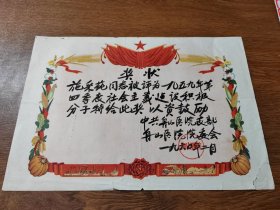 奖状
施采苑同志被评为一九五九年第
四季度社会主义建设积极
分子特给此奖以资鼓励
中共舟山医院支部
舟山医院院委会
一九六〇年二月